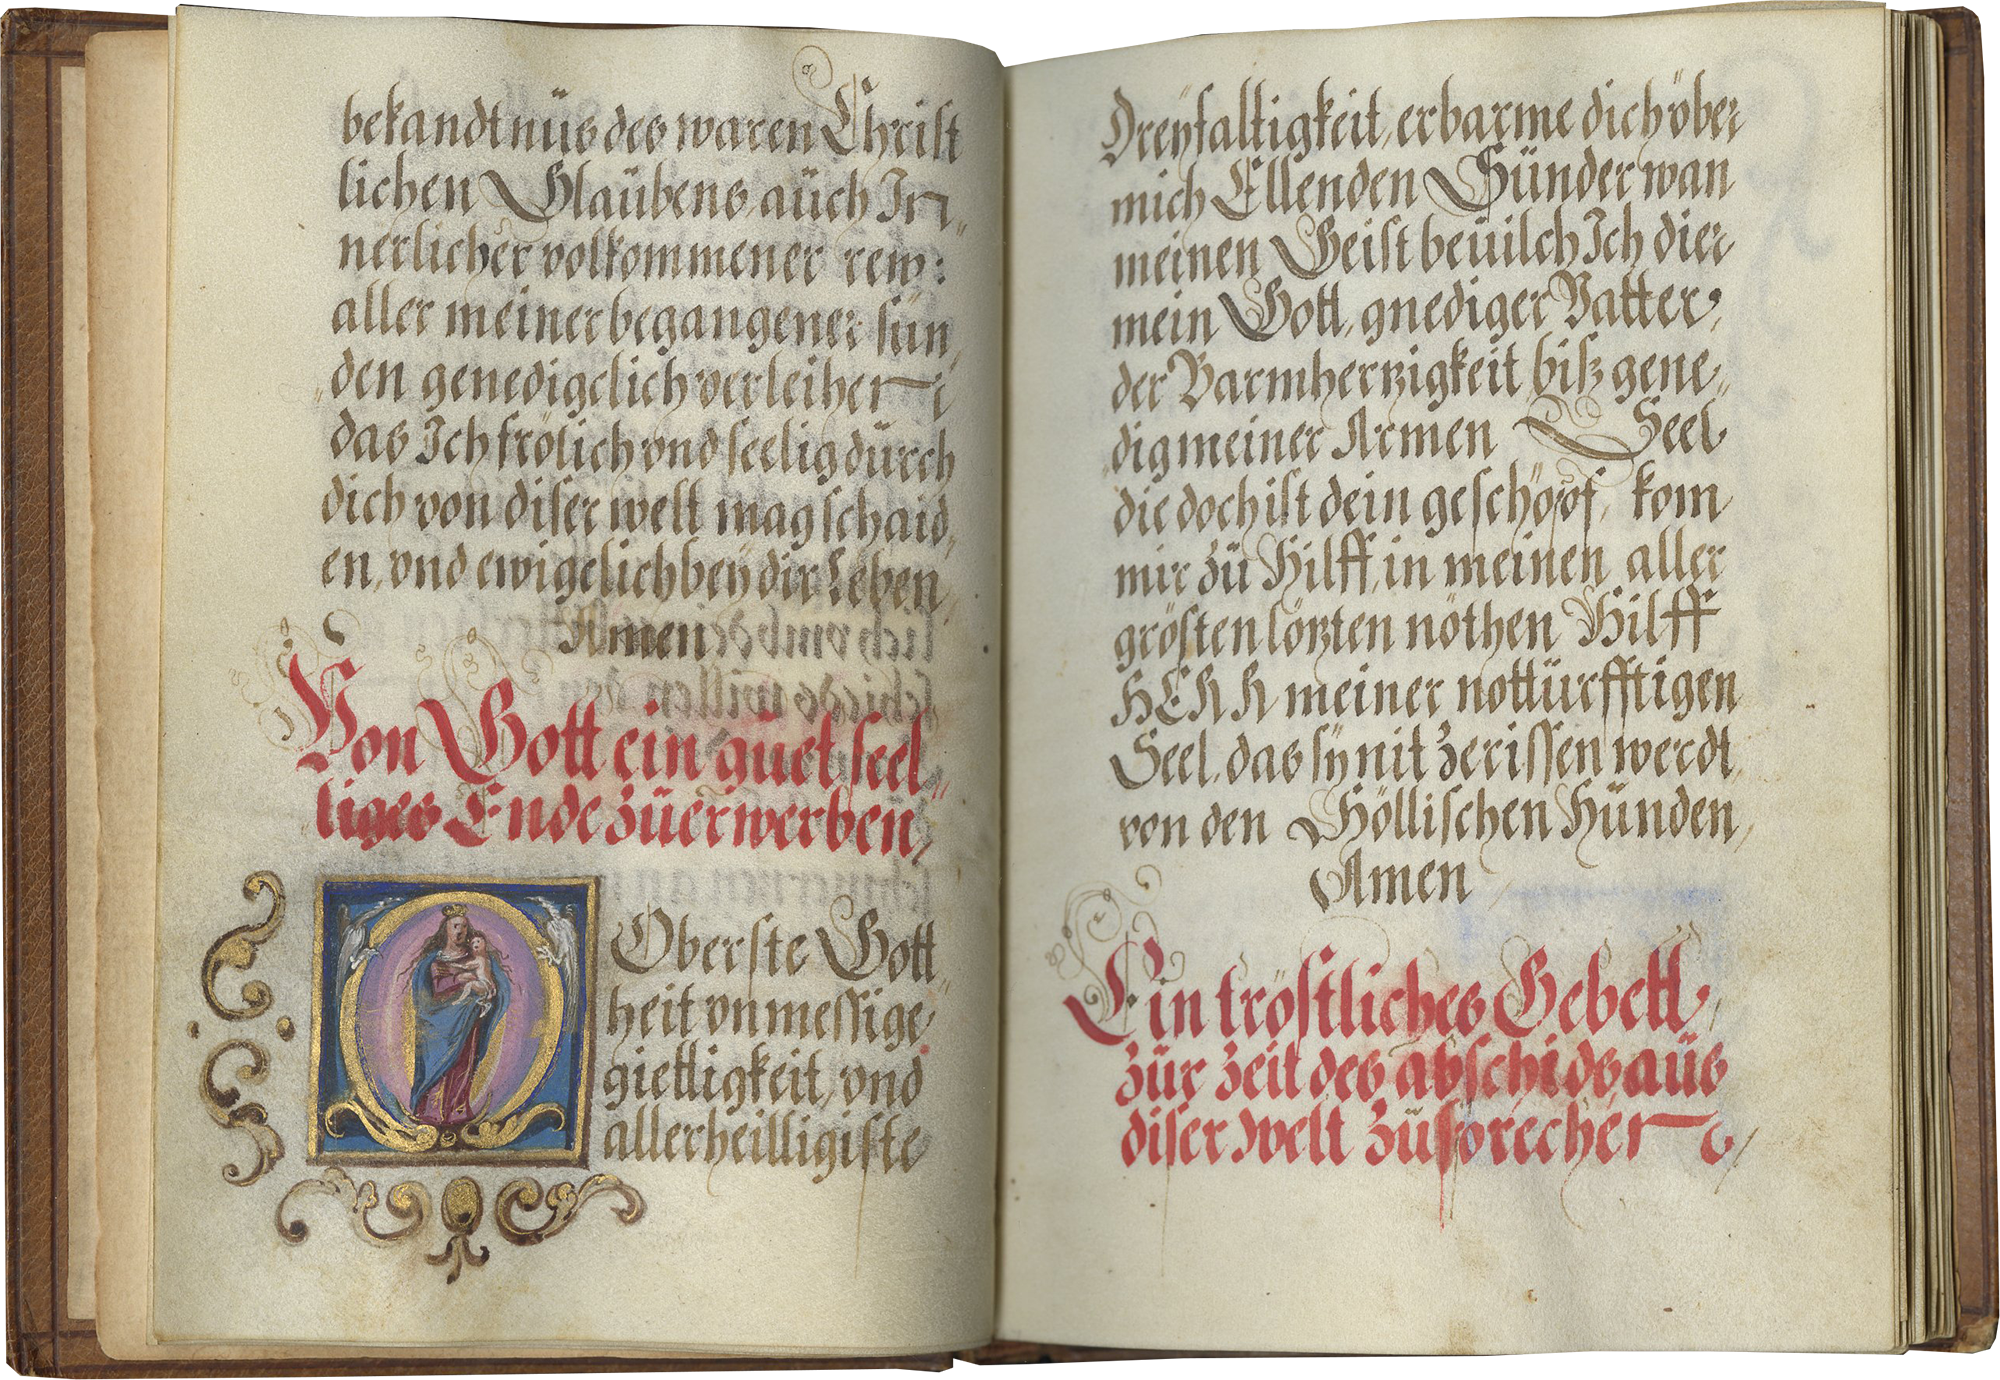 bekandtnüs des waren Christ
lichen Glaübens, aüch In„
nerlicher volkommener rew:
aller meiner begangener sün„
den genedigclich verleihen
das Ich frölich vnd seelig dürch
dich von diser welt mag schaid„
en, vnd ewigclich beÿ dir Leben,
Amen
Von Gott ein güet seel„
liges Ende züerwerben,
Oberste Gott„
heit vnmessige
giettigkeit, vnd
allerheilligiste
Dreÿfaltigkeit, erbarme dich über
mich Ellenden Sünder wan
meinen Geist beuilch Ich dier
mein Gott, gnediger Vatter,
der Barmhertzigkeit bisz gene„
dig meiner Armen Seel
die doch ist dein geschöpf, kom
mir zü Hilff, in meinen aller
grösten lötzten nöthen Hilff
HERR meiner nottürfftigen
Seel, das sÿ nit zerissen werdt
von den Höllischen Hünden,
Amen
Ein tröstliches Gebett,
zür zeit des abschids aüs
diser welt züsprechen